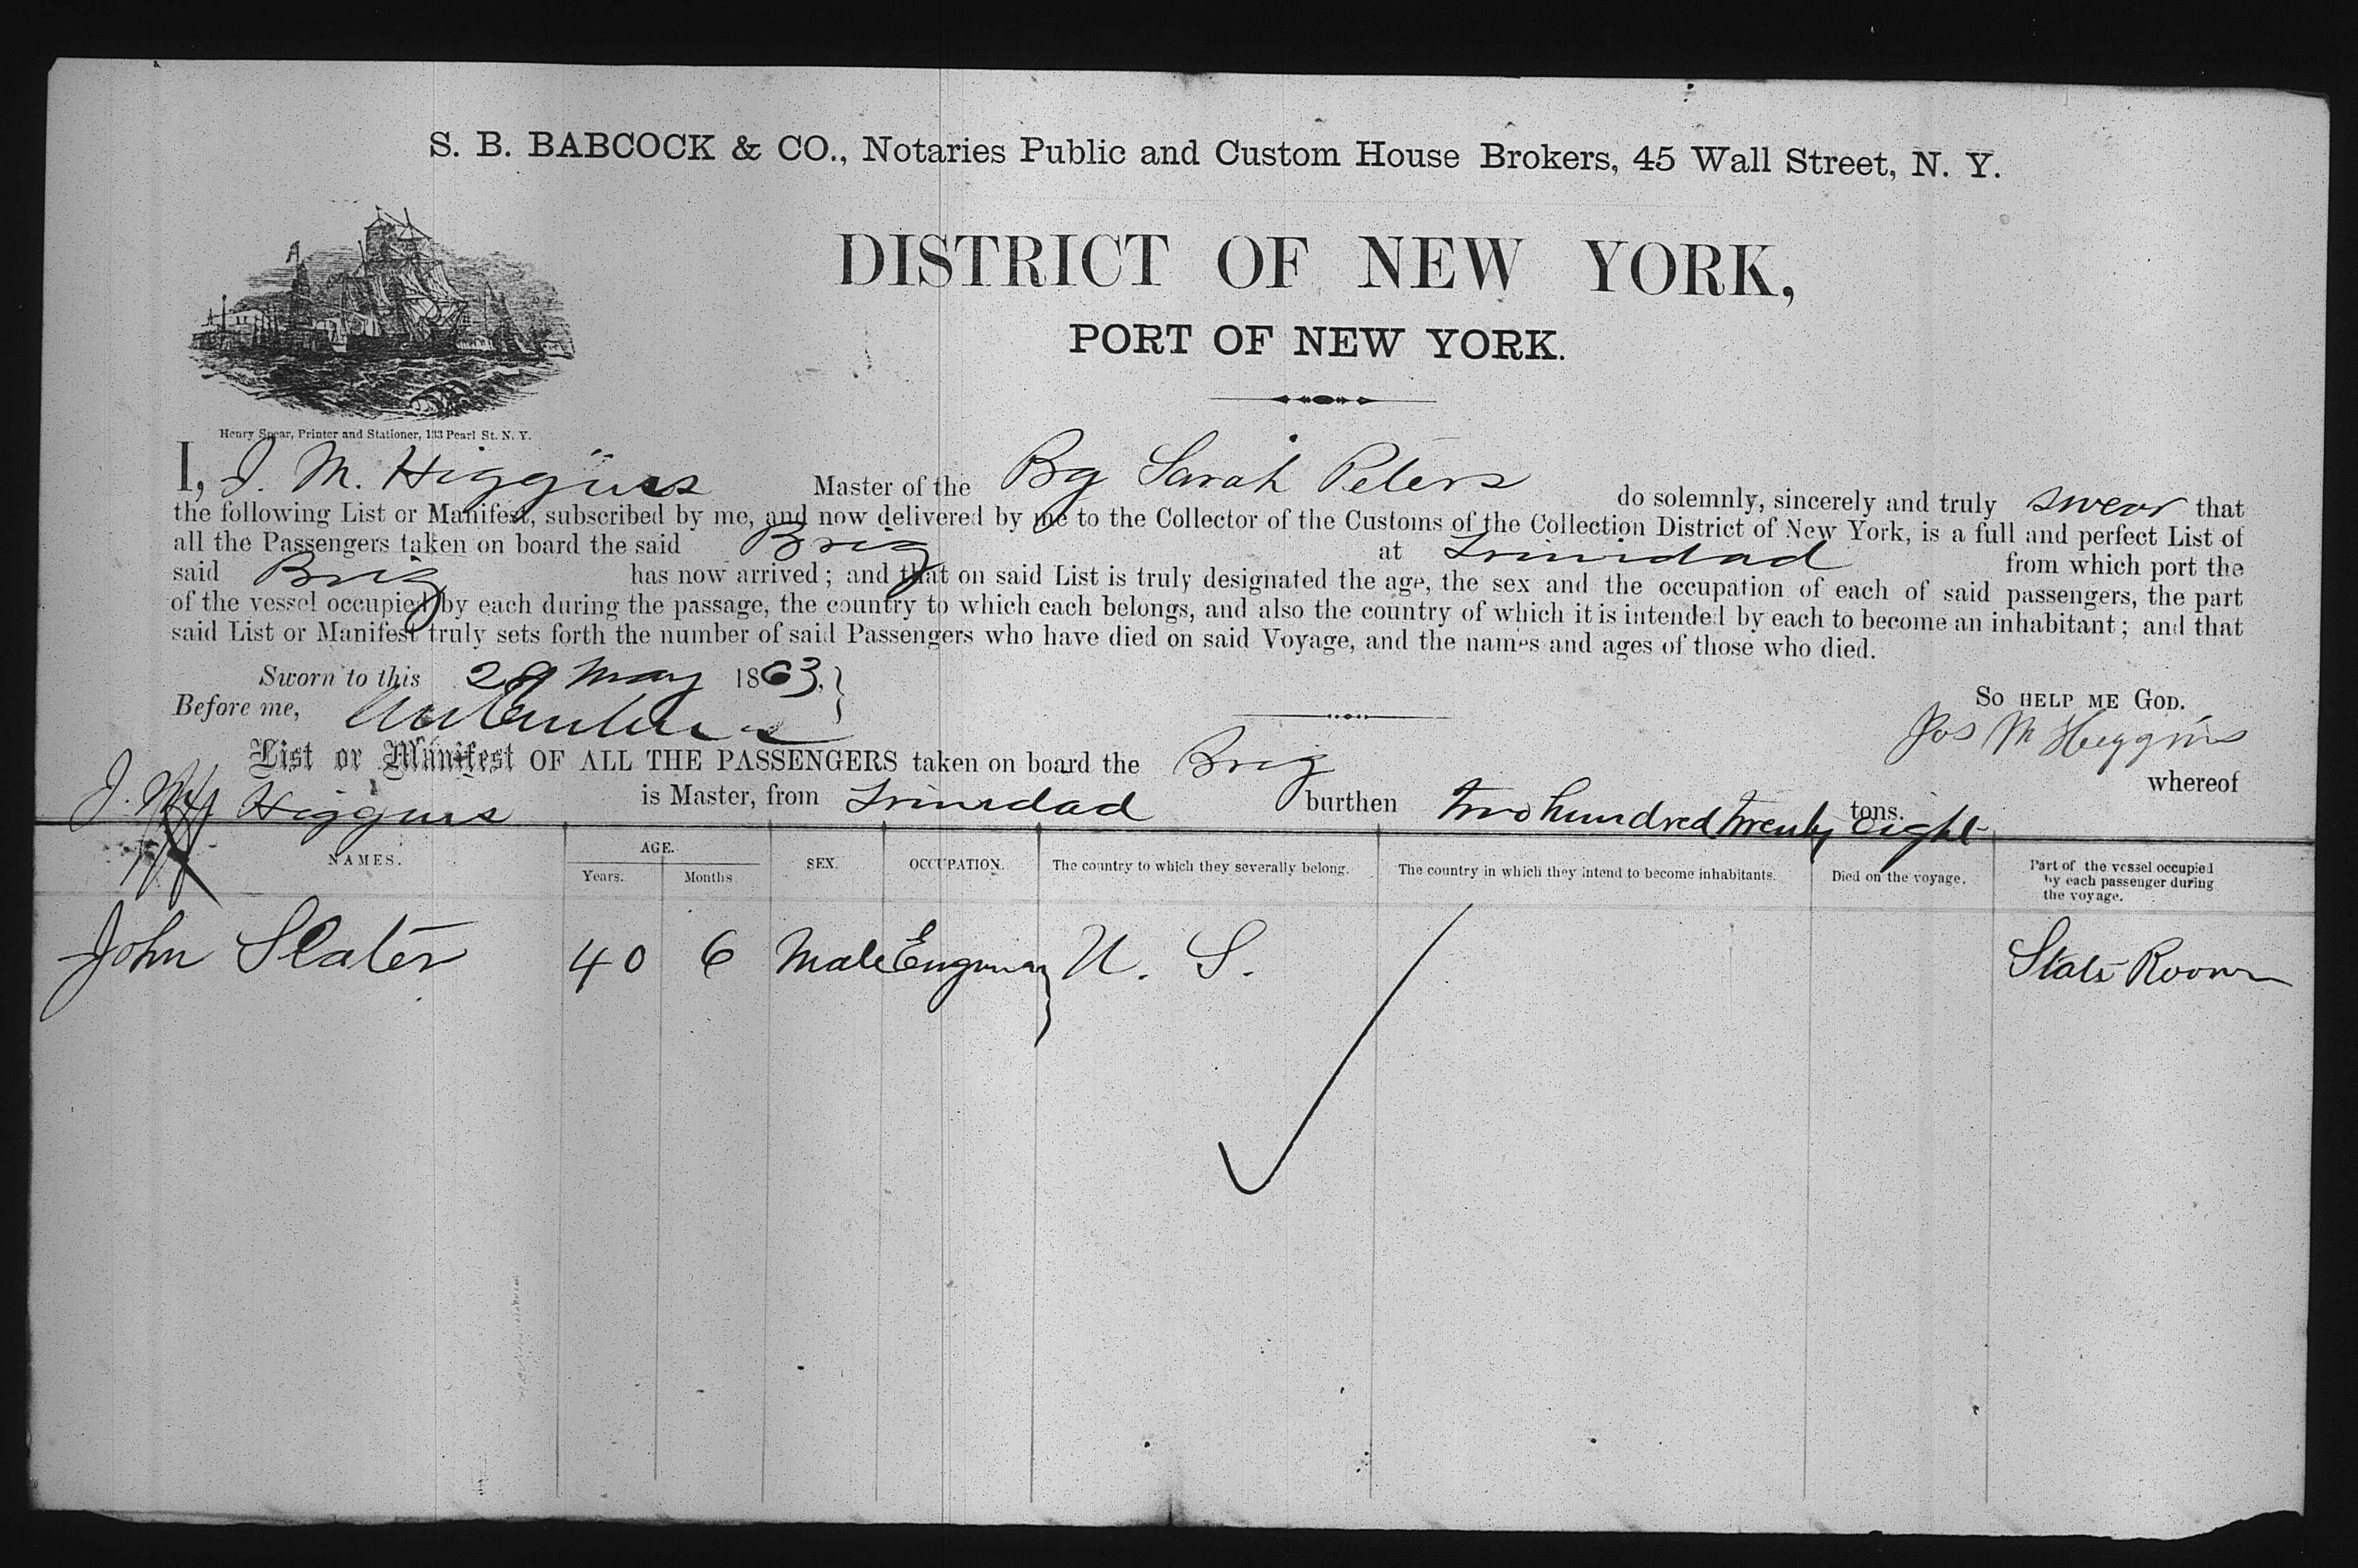 S. B. BABCOCK & CO., Notaries Public and Custom House Brokers, 45 Wall Street, N. Y.
DISTRICT OF NEW YORK,
PORT OF NEW YORK.
Henry Spear, Printer and Stationer, 133 Pearl St. N. Y.
I, J. M. Higgins Master of the Bg Sarah Peters do solemnly, sincerely and truly swear that
the following List or Manifest, subscribed by me, and now delivered by me to the Collector of the Customs of the Collection District of New York, is a full and perfect List of
all the Passengers taken on board the said Brig at Trinidad from which port the
said Brig has now arrived; and that on said List is truly designated the age, the sex and the occupation of each of said passengers, the part
of the vessel occupied by each during the passage, the country to which each belongs, and also the country of which it is intended by each to become an inhabitant; and that
said List or Manifest truly sets forth the number of said Passengers who have died on said Voyage, and the names and ages of those who died.
Sworn to this 29 May 1863, }
So HELP ME GOD.
Before me,
Jos M Higgins
List or Manifest OF ALL THE PASSENGERS taken on board the Brig whereof
J. M. Higgins is Master, from Trinidad burthen two hundred twenty eight tons.
NAMES. AGE. SEX. OCCUPATION. The country to which they severally belong. The country in which they intend to become inhabitants. Died on the voyage. Part of the vessel occupied
Years. Months. by each passenger during
the voyage.
John Slater 40 6 Male Engineer U. S. State Room